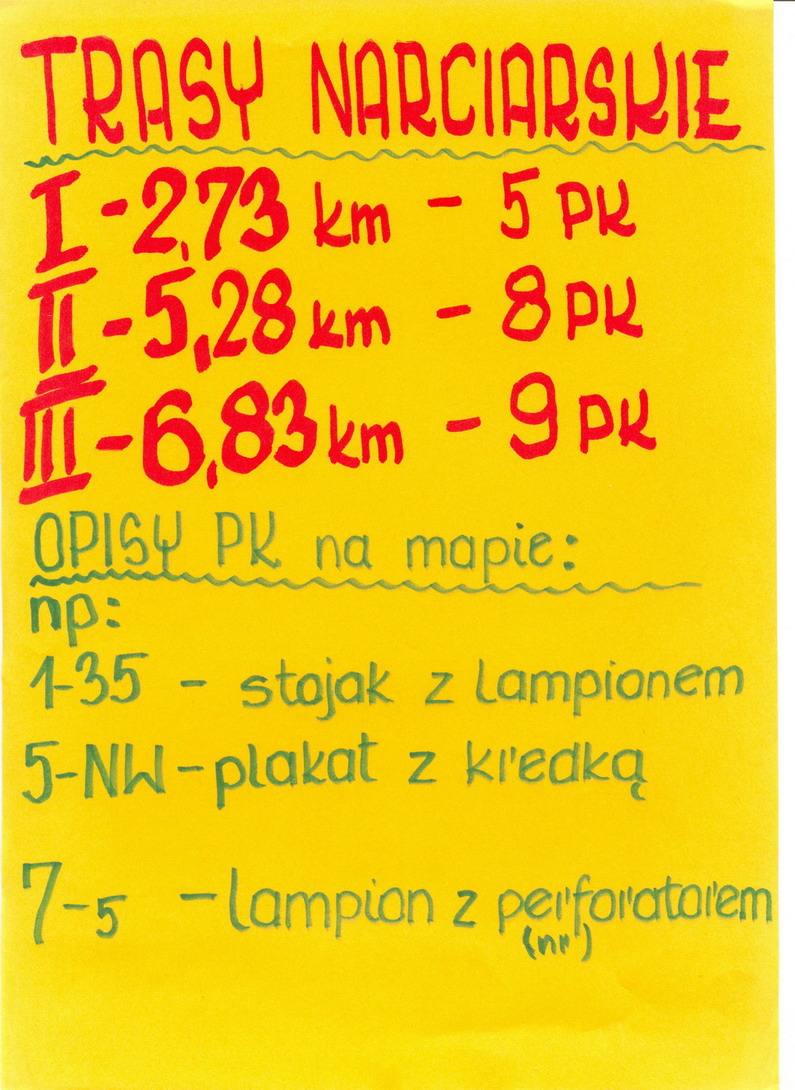 TRASY NARCIARSKIE
I - 2,73 km - 5 PK
II - 5,28 km - 8 PK
III - 6,83 km - 9 PK
OPISY PK na mapie:
np:
1-35 - stojak z lampionem
5-NW - plakat z kredką
7-5 - lampion z perforatorem
(nr)